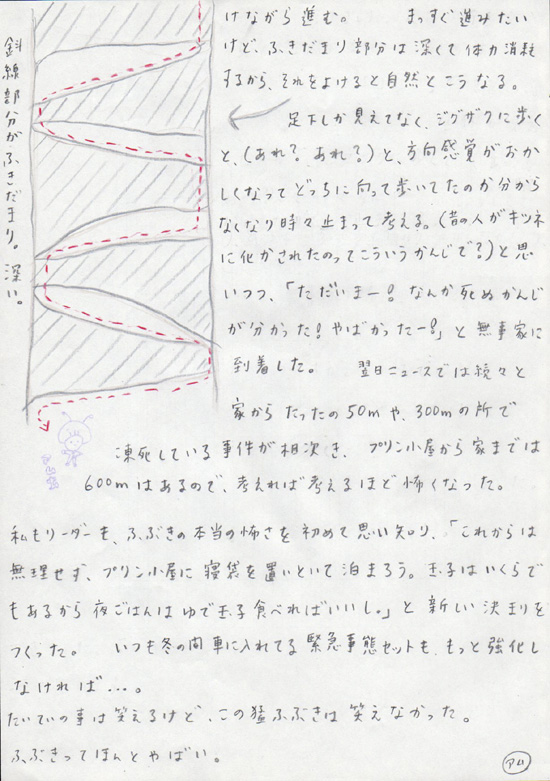 けながら進む。　まっすぐ進みたい
けど、ふきだまり部分は深くて体力消耗
するから、それをよけると自然とこうなる。
足下しか見えてなく、ジグザクに歩く
と、(あれ?あれ?)と、方向感覚がおか
しくなってどっちに向って歩いてたのか分から
なくなり時々止まって考える。(昔の人がキツネ
に化かされたのってこういうかんじで?)と思
いつつ、「ただいまー!なんか死ぬかんじ
が分かった!やばかったー!」と無事家に
到着した。　翌日ニュースでは続々と
家からたったの50mや、300mの所で
凍死している事件が相次ぎ、プリン小屋から家までは
600mはあるので、考えれば考えるほど怖くなった。
私もリーダーも、ふぶきの本当の怖さを初めて思い知り、「これからは
無理せず、プリン小屋に寝袋を置いといて泊まろう。玉子はいくらで
もあるから夜ごはんはゆで玉子食べればいいし。」と新しい決まりを
つくった。　いつも冬の間車に入れてる緊急事態セットも、もっと強化し
なければ…。
たいていの事は笑えるけど、この猛ふぶきは笑えなかった。
ふぶきってほんとやばい。
斜線部分がふきだまり。深い。